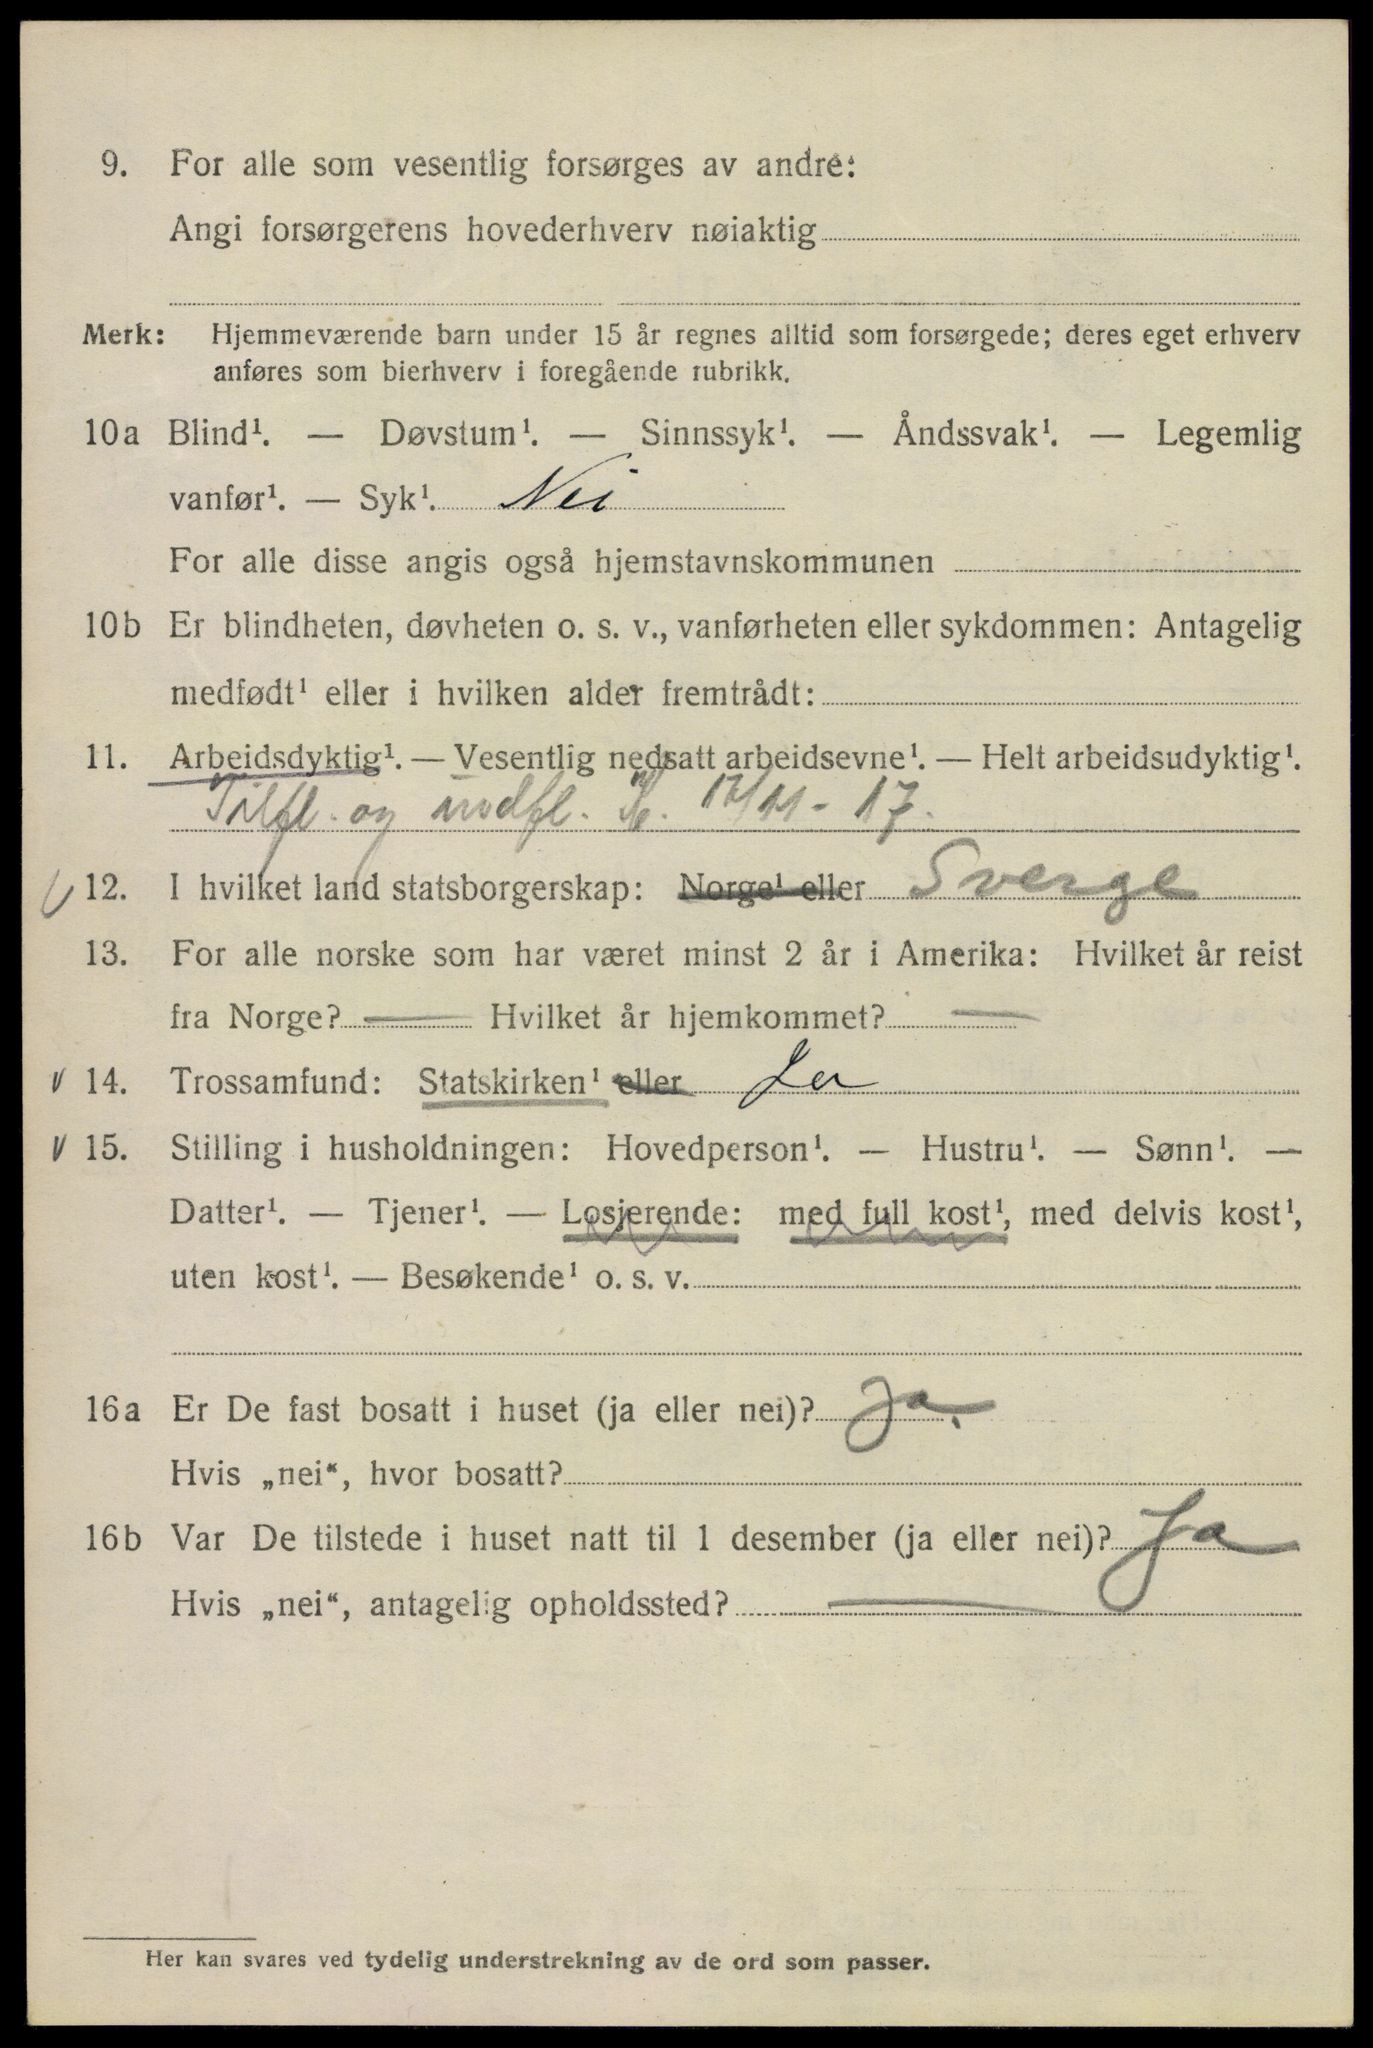 9. For alle som vesentlig forsørges av andre:
Angi forsørgerens hovederhverv nøiaktig
Merk: Hjemmeværende barn under 15 år regnes alltid som forsørgede; deres eget erhverv
anføres som bierhverv i foregående rubrikk.
10a Blind¹. — Døvstum¹. — Sinnssyk¹. — Åndssvak¹. — Legemlig
vanfør¹. — Syk¹. Nei
For alle disse angis også hjemstavnskommunen
10b Er blindheten, døvheten o. s. v., vanførheten eller sykdommen: Antagelig
medfødt¹ eller i hvilken alder fremtrådt:
11. Arbeidsdyktig¹. — Vesentlig nedsatt arbeidsevne¹. — Helt arbeidsudyktig¹.
Tilfl. og innfl. 17/11 - 17.
12. I hvilket land statsborgerskap: Norge¹ eller Sverge
13. For alle norske som har været minst 2 år i Amerika: Hvilket år reist
fra Norge? — Hvilket år hjemkommet? —
14. Trossamfund: Statskirken¹ eller Ja
15. Stilling i husholdningen: Hovedperson¹. — Hustru¹. — Sønn¹. —
Datter¹. — Tjener¹. — Losjerende: med full kost¹, med delvis kost¹,
uten kost¹. — Besøkende¹ o. s. v.
16a Er De fast bosatt i huset (ja eller nei)? Ja.
Hvis „nei“, hvor bosatt?
16b Var De tilstede i huset natt til 1 desember (ja eller nei)? Ja
Hvis „nei“, antagelig opholdssted? —
Her kan svares ved tydelig understrekning av de ord som passer.